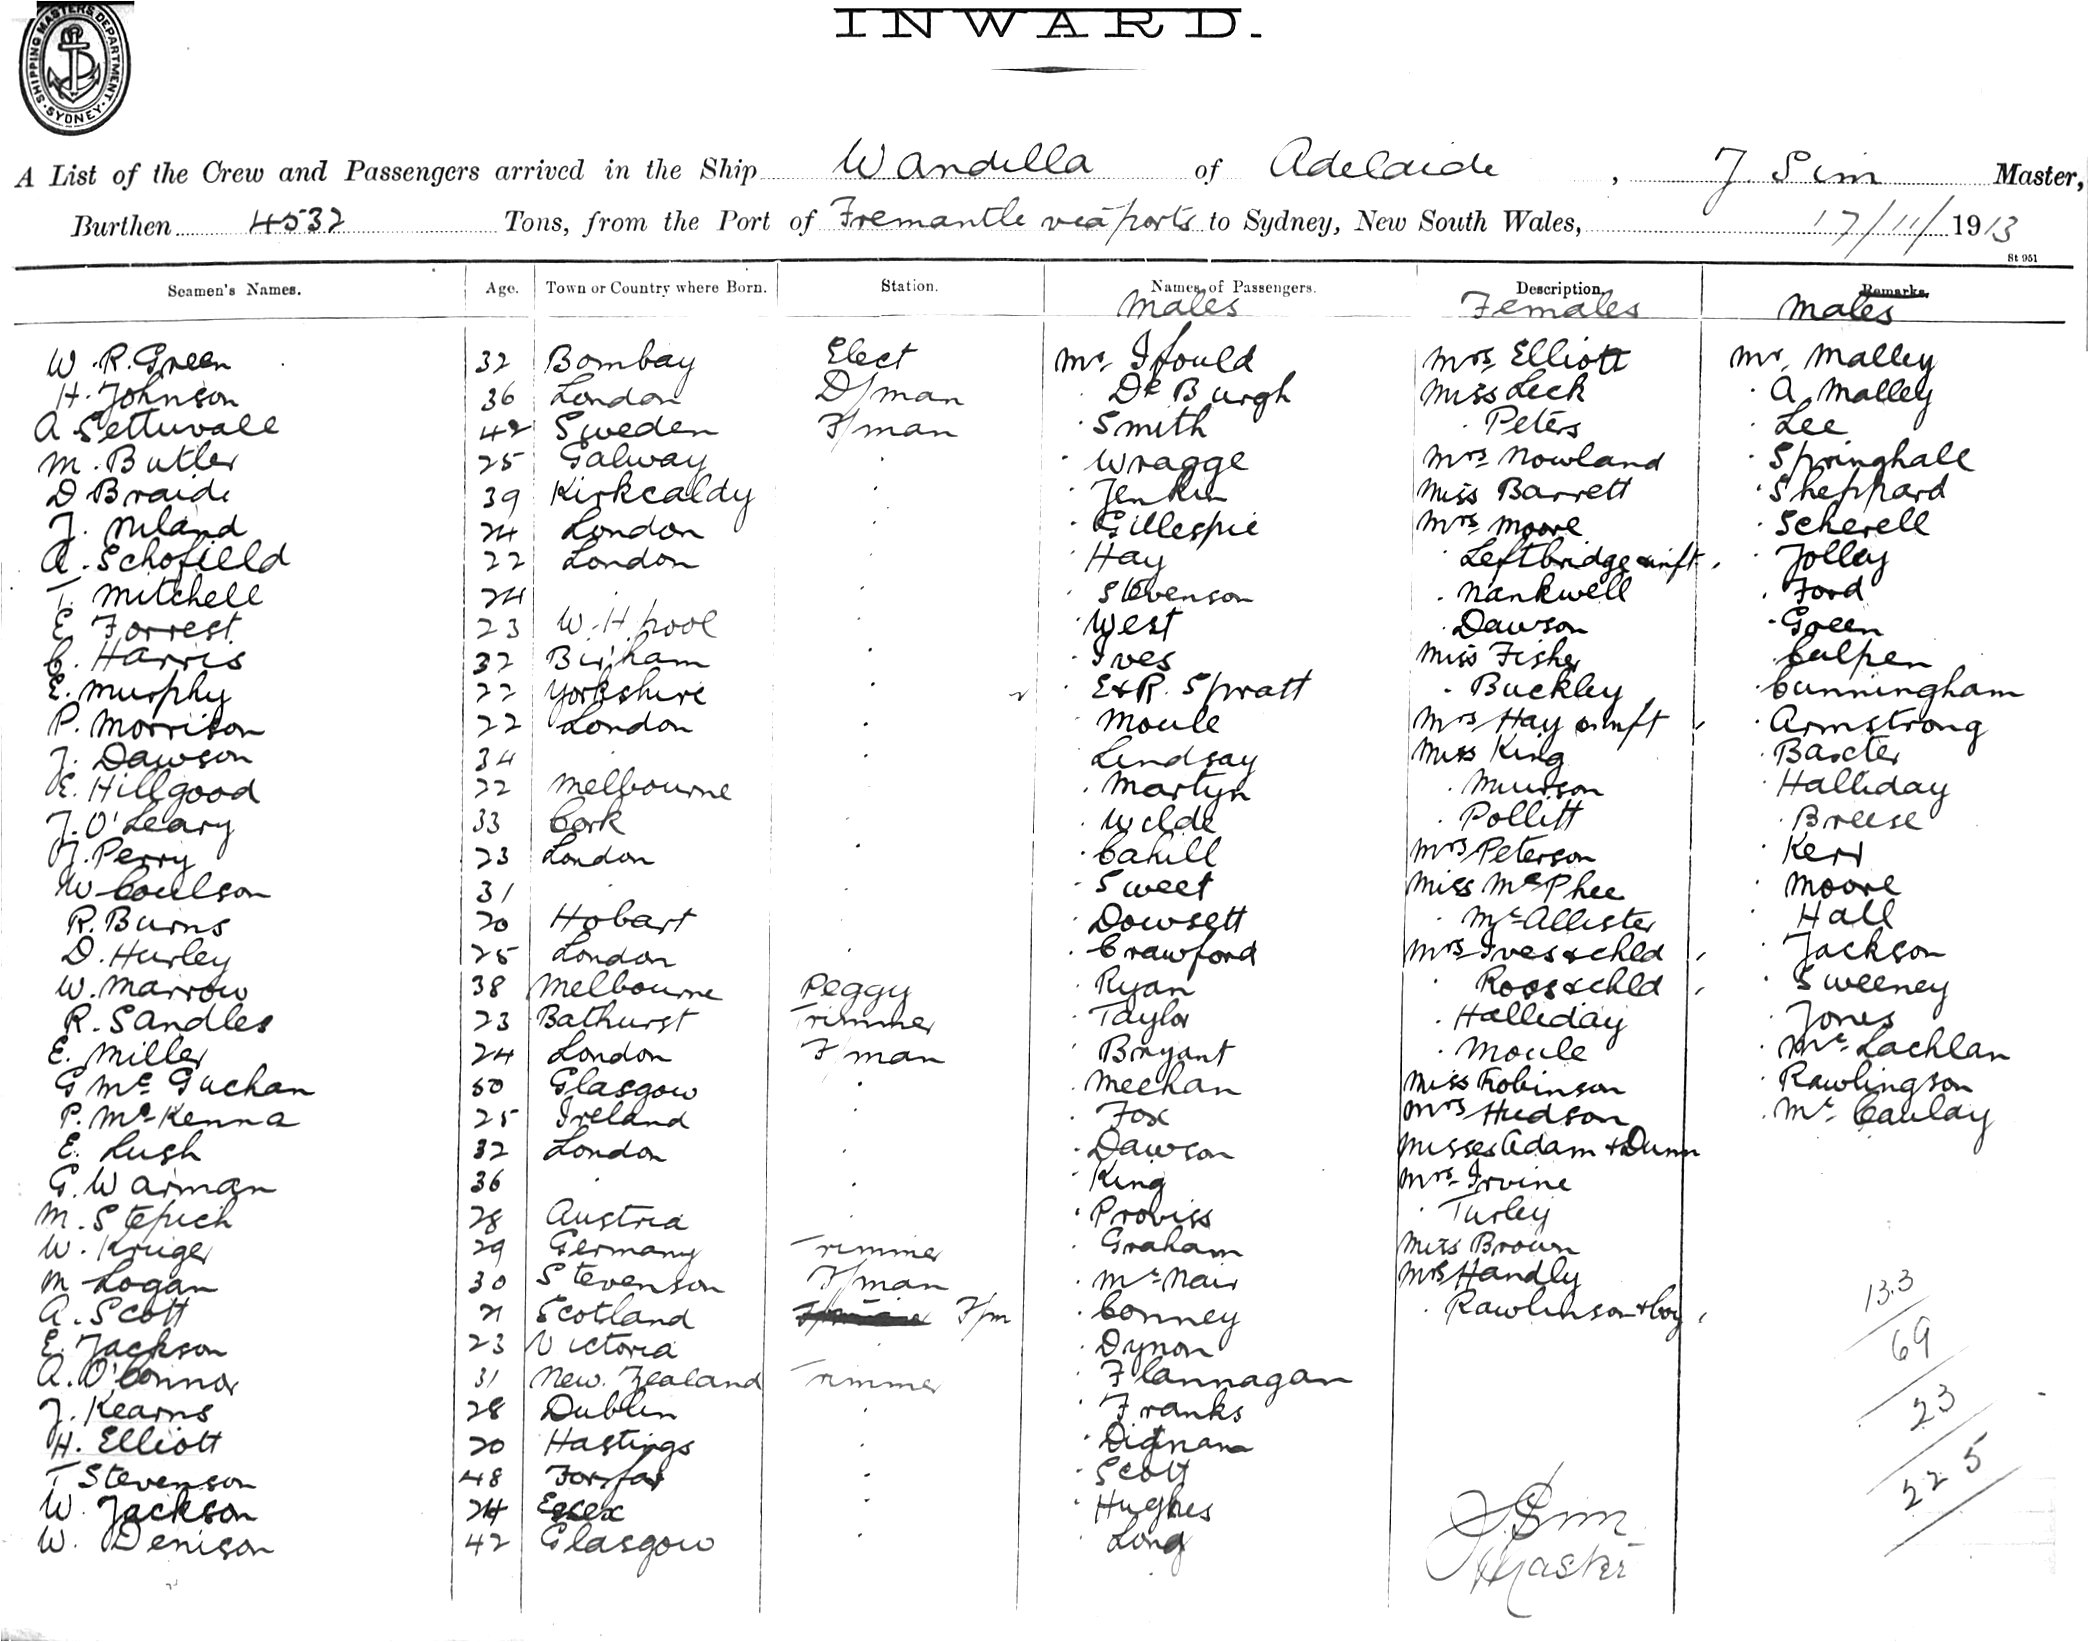 SHIPPING MASTERS DEPARTMENT. SYDNEY.
INWARD.
A List of the Crew and Passengers arrived in the Ship Wandilla of Adelaide, J. Sim Master,
Burthen 4532 Tons, from the Port of Fremantle via ports to Sydney, New South Wales, 17/11/1913
St 951
Seamen's Names. Age. Town or Country where Born. Station. Names of Passengers. Description. Remarks.
Males Females Males
W. R. Green 32 Bombay Elect Mr Ifould Mrs Elliott Mr. Malley
H. Johnson 36 London D/man · De Burgh Miss Leck · A Malley
A Settuvale 42 Sweden F/man · Smith · Peters · Lee
M. Butler 25 Galway · · Wragge Mrs Nowland · Springhall
D Braid 39 Kirkcaldy · · Jenkin Miss Barrett · Sheppard
J. Niland 24 London · · Gillespie Mrs Moore · Scherell
A. Schofield 22 London · · Hay · Leftbridge & inft · Jolley
T. Mitchell 24 · · · Stevenson · Nankwell · Ford
E Forrest 23 W. H/pool · · West · Dawson · Green
C. Harris 32 Bir'ham · · Ives Miss Fisher · Culpen
E. Murphy 22 Yorkshire · · E & R. Spratt · Buckley · Cunningham
P. Morrison 22 London · · Moule Mrs Hay & inft · Armstrong
J. Dawson 34 · · · Lindsay Miss King · Baxter
E. Hillgood 22 Melbourne · · Martyn · Muirson · Halliday
J. O'Leary 33 Cork · · Wilde · Pollitt · Breese
J. Perry 23 London · · Cahill Mrs Peterson · Kerr
W Coulson 31 · · · Sweet Miss McPhee · Moore
R. Burns 20 Hobart · · Dowsett · McAllister · Hall
D. Hurley 25 London · · Crawford Mrs Ives & chld · Jackson
W. Marrow 38 Melbourne Peggy · Ryan · Ross & chld · Sweeney
R. Sandles 23 Bathurst Trimmer · Taylor · Halliday · Jones
E. Miller 24 London F/man · Bryant · Moule · McLachlan
G McGuchan 50 Glasgow · · Meehan Miss Robinson · Rawlingson
P. McKenna 25 Ireland · · Fox Mrs Hudson · McCaulay
E. Lush 32 London · · Dawson Misses Adam & Dunn
G. Warman 36 · · · King Mrs Irvine
M. Stepich 28 Austria · · Proviss · Turley
W. Kruger 29 Germany Trimmer · Graham Miss Brown
M Logan 30 Stevenson F/man · McNair Mrs Handly
A. Scott 21 Scotland F/m · Conney · Rawlinson & boy
E. Jackson 23 Victoria · · Dynon
A. O'Connor 31 New Zealand Trimmer · Flannagan
J. Kearns 28 Dublin · · Franks
H. Elliott 20 Hastings · · Dignam
T Stevenson 48 Forfar · · Scott
W. Jackson 24 Essex · · Hughes
W. Denison 42 Glasgow · · Long
133
69
23
225
J Sim
Master